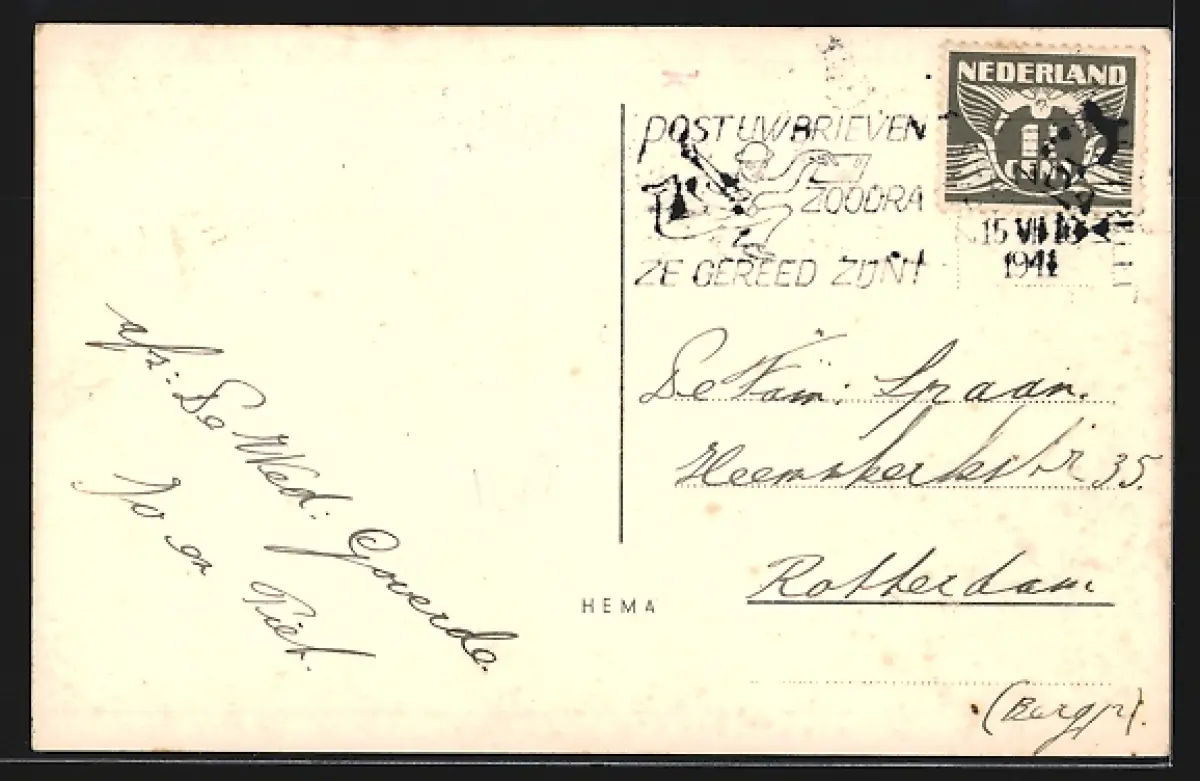 NEDERLAND
POST UW BRIEVEN
ZOODRA
ZE GEREED ZIJN!
15 VII
1941
afz: De Wed: Goverde.
Jo en Piet.
De Fam: Spaan.
Heemskerkstr 35.
Rotterdam
HEMA